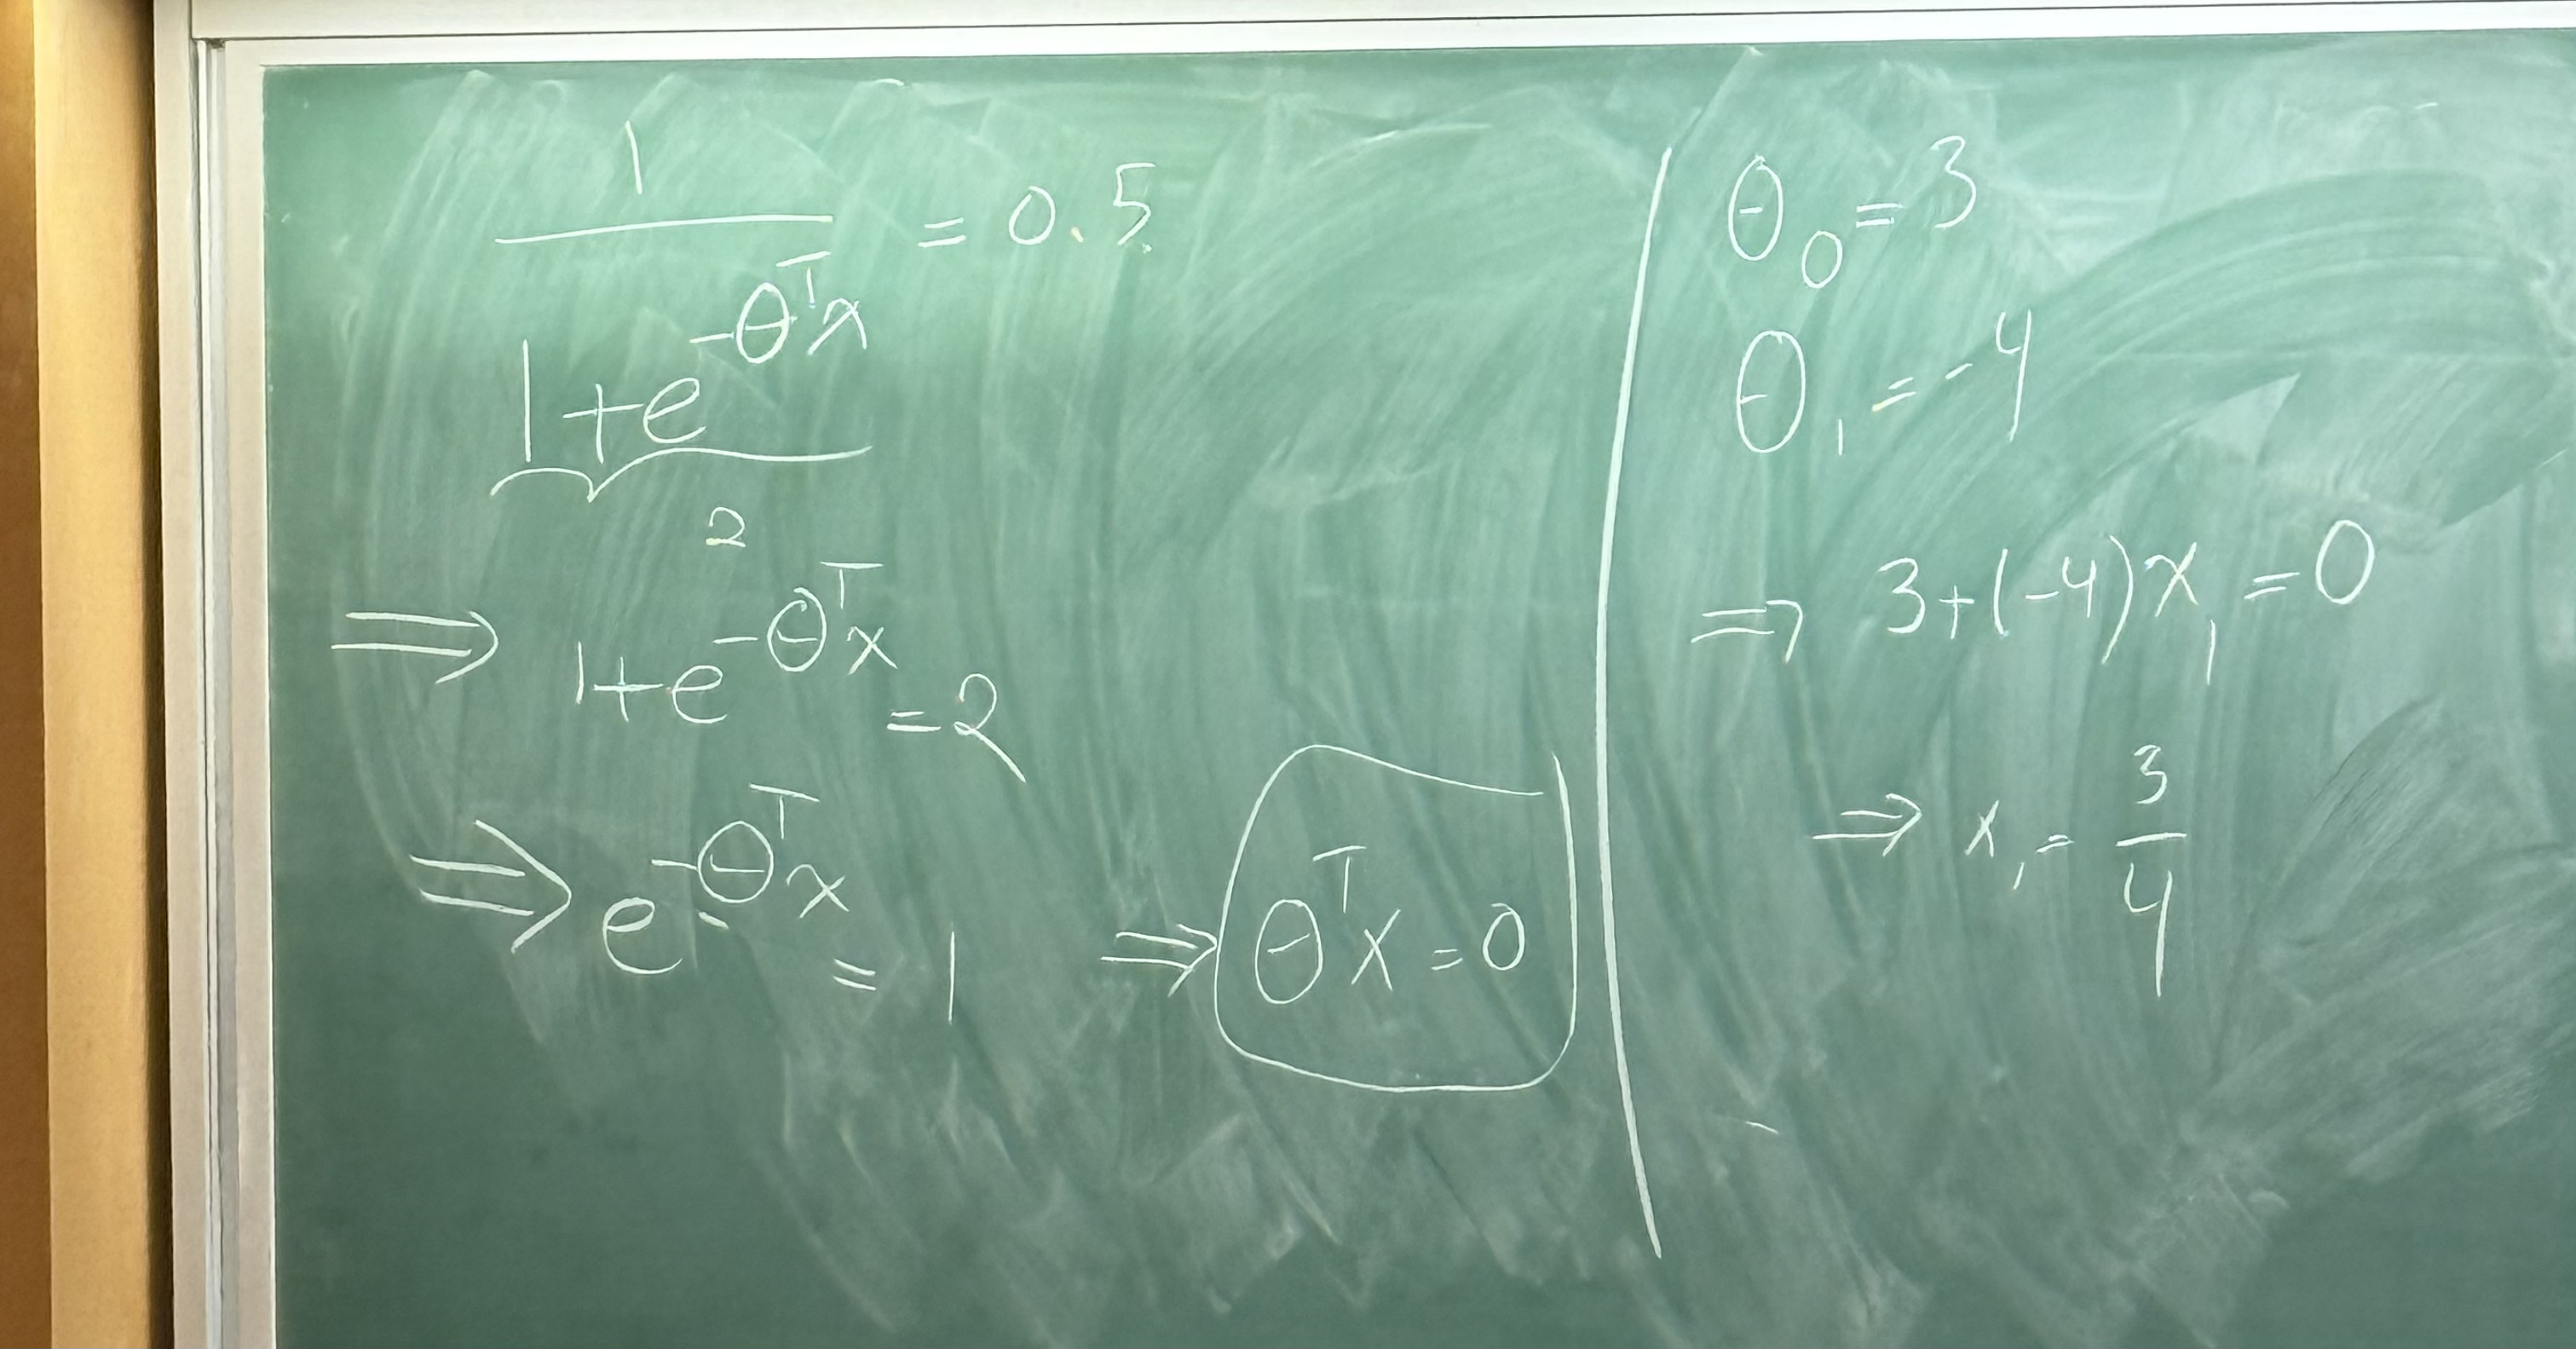 1 / (1+e^{-θ^T x}) = 0.5
2
⇒ 1+e^{-θ^T x} = 2
⇒ e^{-θ^T x} = 1 ⇒ θ^T x = 0
θ_0 = 3
θ_1 = -4
⇒ 3+(-4)x_1 = 0
⇒ x_1 = 3/4